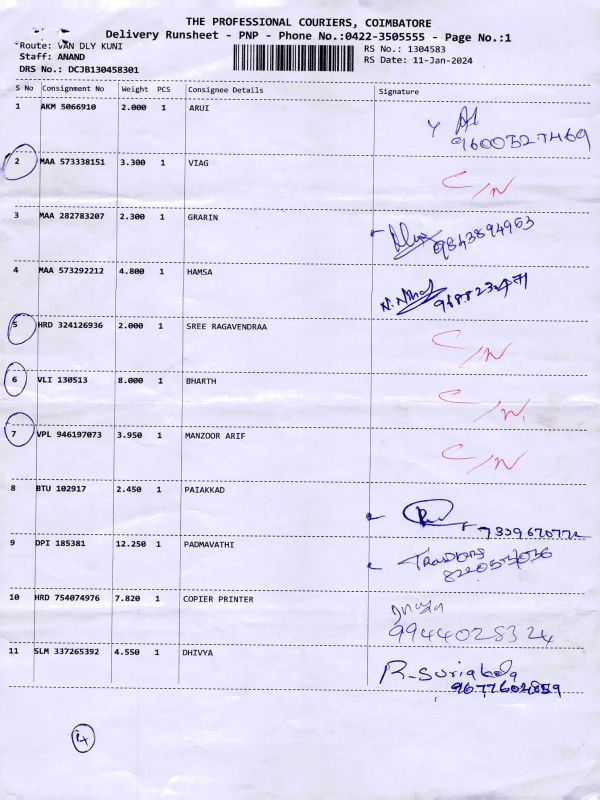 THE PROFESSIONAL COURIERS, COIMBATORE
Delivery Runsheet - PNP - Phone No.:0422-3505555 - Page No.:1
Route: VAN DLY KUNI RS No.: 1304583
Staff: ANAND RS Date: 11-Jan-2024
DRS No.: DCJB130458301
S No Consignment No Weight PCS Consignee Details Signature
1 AKM 5066910 2.000 1 ARUI
9600527469
2 MAA 573338151 3.300 1 VIAG C/N
3 MAA 282783207 2.300 1 GRARIN 9843894953
4 MAA 573292212 4.800 1 HAMSA
5 HRD 324126936 2.000 1 SREE RAGAVENDRAA C/N
6 VLI 130513 8.000 1 BHARTH C/N
7 VPL 946197073 3.950 1 MANZOOR ARIF C/N
8 BTU 102917 2.450 1 PAIAKKAD
9 DPI 185381 12.250 1 PADMAVATHI
10 HRD 754074976 7.820 1 COPIER PRINTER
9944028324
11 SLM 337265392 4.550 1 DHIVYA R-Suriakala
9677602859
4